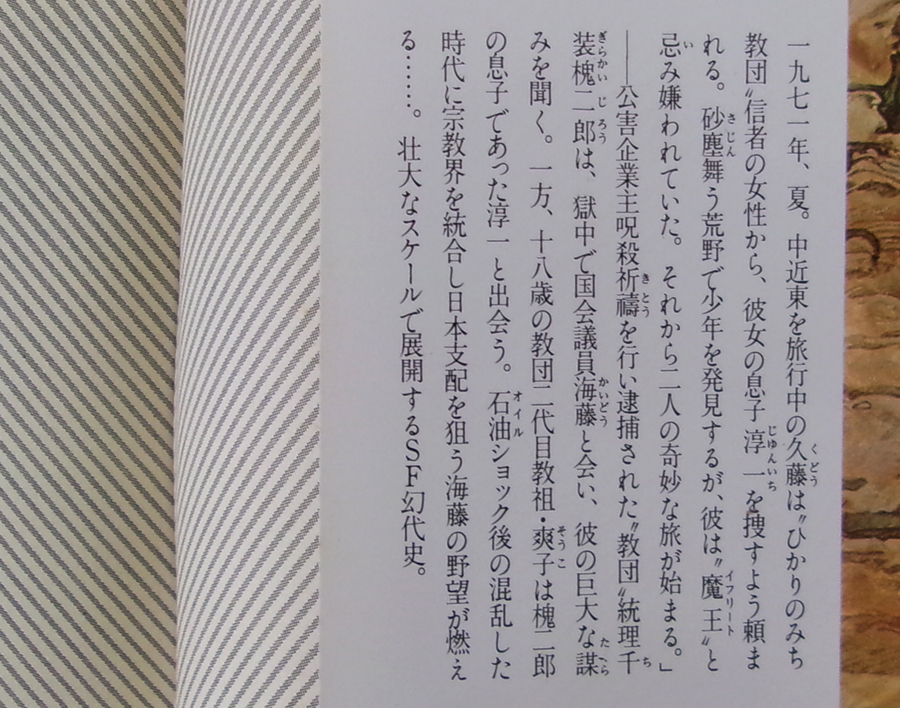 一九七一年、夏。中近東を旅行中の久藤は〝ひかりのみち
教団〟信者の女性から、彼女の息子淳一を捜すよう頼ま
れる。砂塵舞う荒野で少年を発見するが、彼は〝魔王〟と
忌み嫌われていた。それから二人の奇妙な旅が始まる。」
――公害企業主呪殺祈禱を行い逮捕された〝教団〟統理千
装槐二郎は、獄中で国会議員海藤と会い、彼の巨大な謀
みを聞く。一方、十八歳の教団二代目教祖・爽子は槐二郎
の息子であった淳一と出会う。石油ショック後の混乱した
時代に宗教界を統合し日本支配を狙う海藤の野望が燃え
る……。壮大なスケールで展開するSF幻代史。